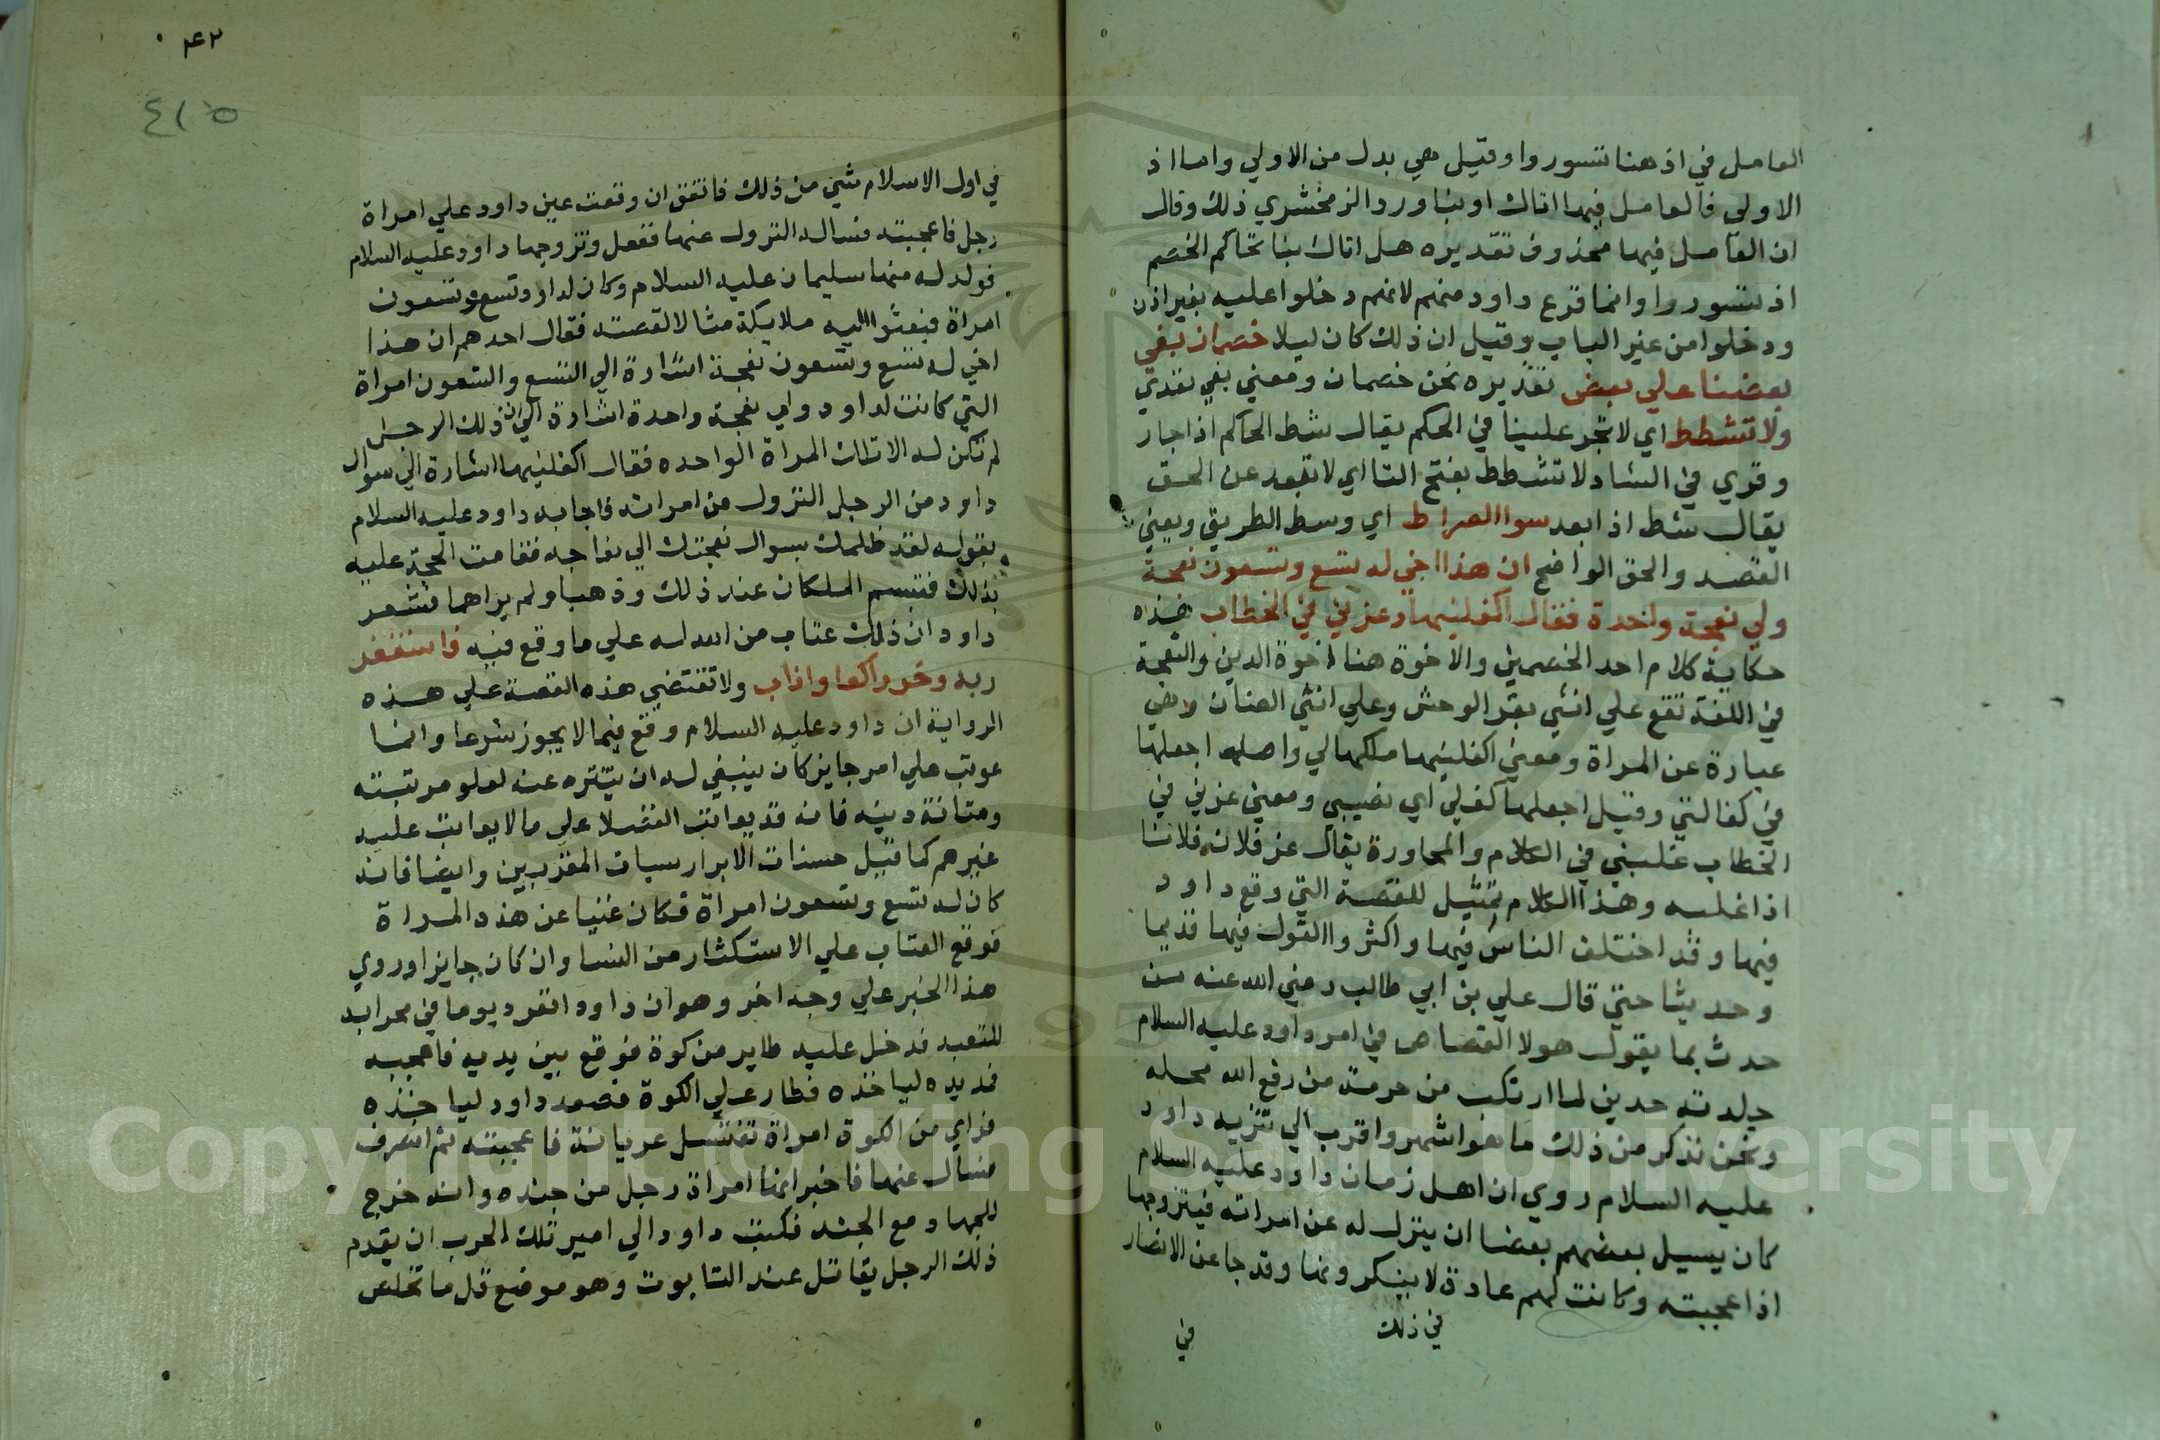 العامل في اذ هنا تسوروا وقيل هي بدل من الاولي واما اذ
الاولي فالعامل فيها اتاك او نبا ورد الزمخشري ذلك وقال
ان العامل فيها محذوف تقديره هل اتاك نبا تحاكم الخصم
اذ تسوروا وانما فزع داود منهم لانهم دخلوا عليه بغير اذن
ودخلوا من غير الباب وقيل ان ذلك كان ليلا خصمان بغي
بعضنا علي بعض تقديره نحن خصمان ومعني بغي تعدي
ولا تشطط اي لا تجر علينا في الحكم يقال شط الحاكم اذا جار
وقري في الشاد لا تشطط بفتح التا اي لا تبعد عن الحق
يقال شط اذا بعد سوا الصراط اي وسط الطريق ويعني
القصد والحق الواضح ان هذا اخي له تسع وتسعون نعجة
ولي نعجة واحدة فقال اكفلنيها وعزني في الخطاب هذه
حكاية كلام احد الخصمين والاخوة هنا اخوة الدين والنعجة
في اللغة تقع علي انثي بقر الوحش وعلي انثي الضان وهي
عبارة عن المراة ومعني اكفلنيها ملكها لي واصله اجعلها
في كفالتي وقيل اجعلها كفلي اي نصيبي ومعني عزني في
الخطاب غلبني في الكلام والمحاورة يقال عز فلان فلانا
اذا غلبه وهذا الكلام تمثيل للقصة التي وقع داود
فيها وقد اختلف الناس فيها واكثروا القول فيها قديما
وحديثا حتي قال علي بن ابي طالب رضي الله عنه من
حدث بما يقول هولا القصاص في امر داود عليه السلام
جلدته حدين لما ارتكب من حرمة من رفع الله محله
ونحن نذكر من ذلك ما هو اشهر واقرب الي تنزيه داود
عليه السلام روي ان اهل زمان داود عليه السلام
كان يسيل بعضهم بعضا ان ينزل له عن امراته فيتزوجها
اذا عجبته وكانت لهم عادة لا ينكرونها وقد جا عن الانصار
في ذلك
في
٤٢
٤١٥
في اول الاسلام شي من ذلك فاتفق ان وقعت عين داود علي امراة
رجل فاعجبته فساله النزول عنها ففعل وتزوجها داود عليه السلام
فولد له منها سليمان عليه السلام وكان لداود تسع وتسعون
امراة فبعثوا اليه ملايكة مثالا لقصته فقال احدهم ان هذا
اخي له تسع وتسعون نعجة اشارة الي التسع والتسعون امراة
التي كانت لداود ولي نعجة واحدة اشارة الي ان ذلك الرجل
لم تكن له الا تلك المراة الواحده فقال اكفلنيها اشارة الي سوال
داود من الرجل النزول من امراته فاجابه داود عليه السلام
بقوله لقد ظلمك بسوال نعجتك الي نعاجه فقامت الحجة عليه
بذلك فتبسم الملكان عند ذلك وذهبا ولم يراهما فشعر
داود ان ذلك عتاب من الله له علي ما وقع فيه فاستغفر
ربه وخر راكعا واناب ولا تقتضي هذه القصة علي هذه
الرواية ان داود عليه السلام وقع فيما لا يجوز شرعا وانما
عوتب علي امر جايز كان ينبغي له ان يتنزه عنه لعلو مرتبته
ومتانة دينه فانه قد يعاتب الفضلا علي ما لا يعاتب عليه
غيرهم كما قيل حسنات الابرار سيات المقربين وايضا فانه
كان له تسع وتسعون امراة فكان غنيا عن هذه المراة
فوقع العتاب علي الاستكثار من النسا وان كان جايزا وروي
هذا الخبر علي وجه اخر وهو ان داود انفرد يوما في محرابه
للتعبد فدخل عليه طاير من كوة فوقع بين يديه فاعجبه
فمد يده لياخذه فطار علي الكوة فصعد داود لياخذه
فراي من الكوة امراة تغتسل عريانة فاعجبته ثم انصرف
فسال عنها فاخبر انها امراة رجل من جنده وانه خرج
للجهاد مع الجند فكتب داود الي امير تلك الحرب ان يقدم
ذلك الرجل يقاتل عند التابوت وهو موضع قل ما تخلص
Copyright © King Saud University